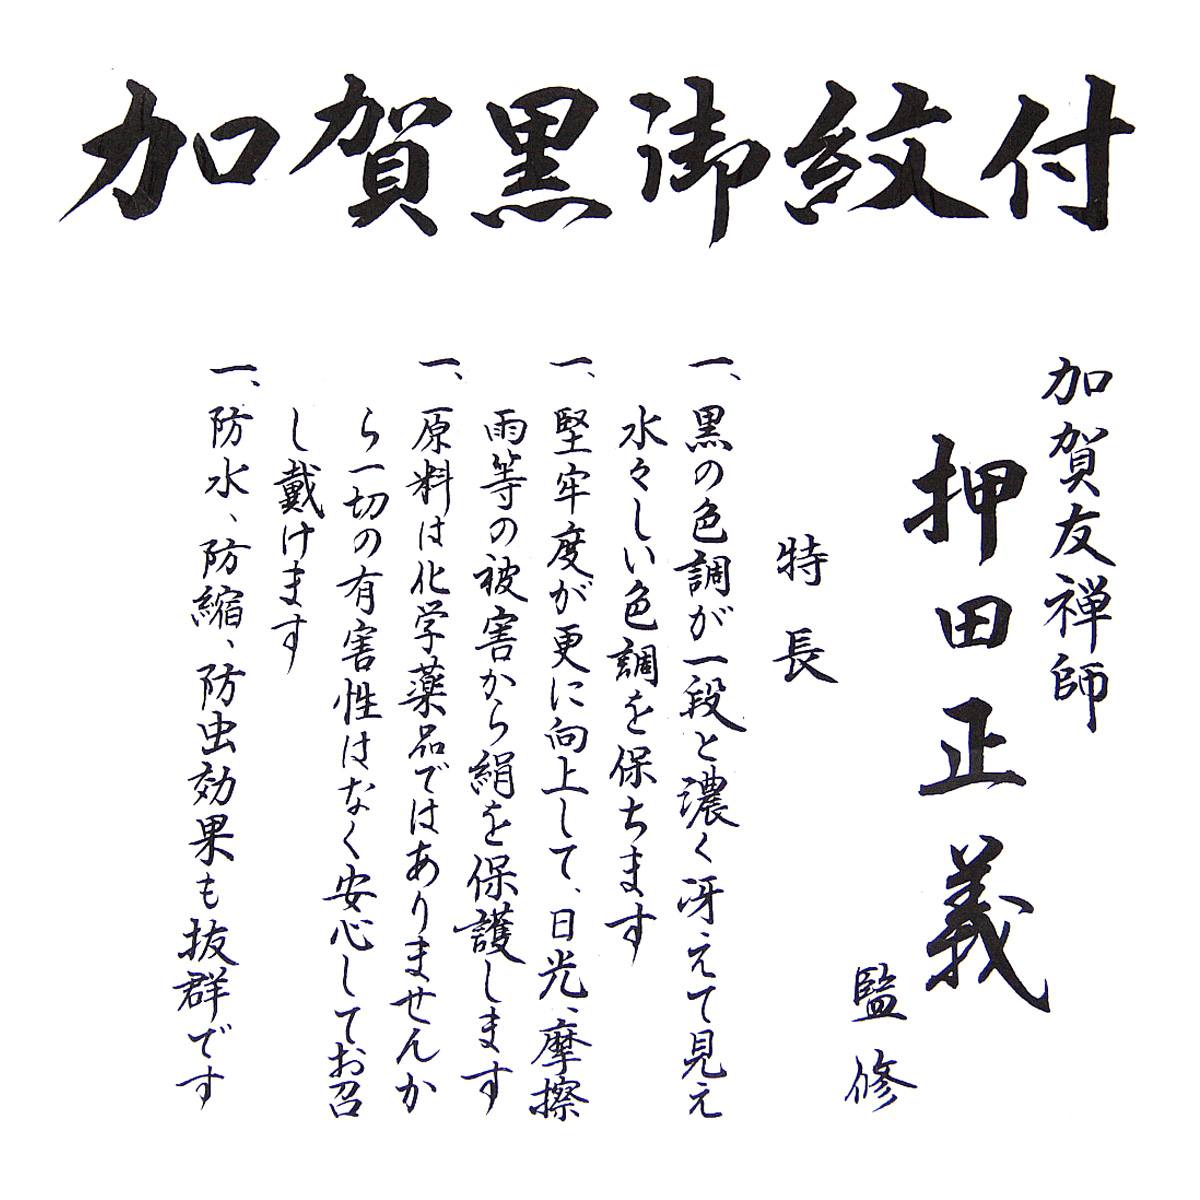 加賀黒御紋付
加賀友禅師
押田正義
監修
特長
一、黒の色調が一段と濃く冴えて見え
水々しい色調を保ちます
一、堅牢度が更に向上して、日光、摩擦
雨等の被害から絹を保護します
一、原料は化学薬品ではありませんか
ら一切の有害性はなく安心してお召
し戴けます
一、防水、防縮、防虫効果も抜群です